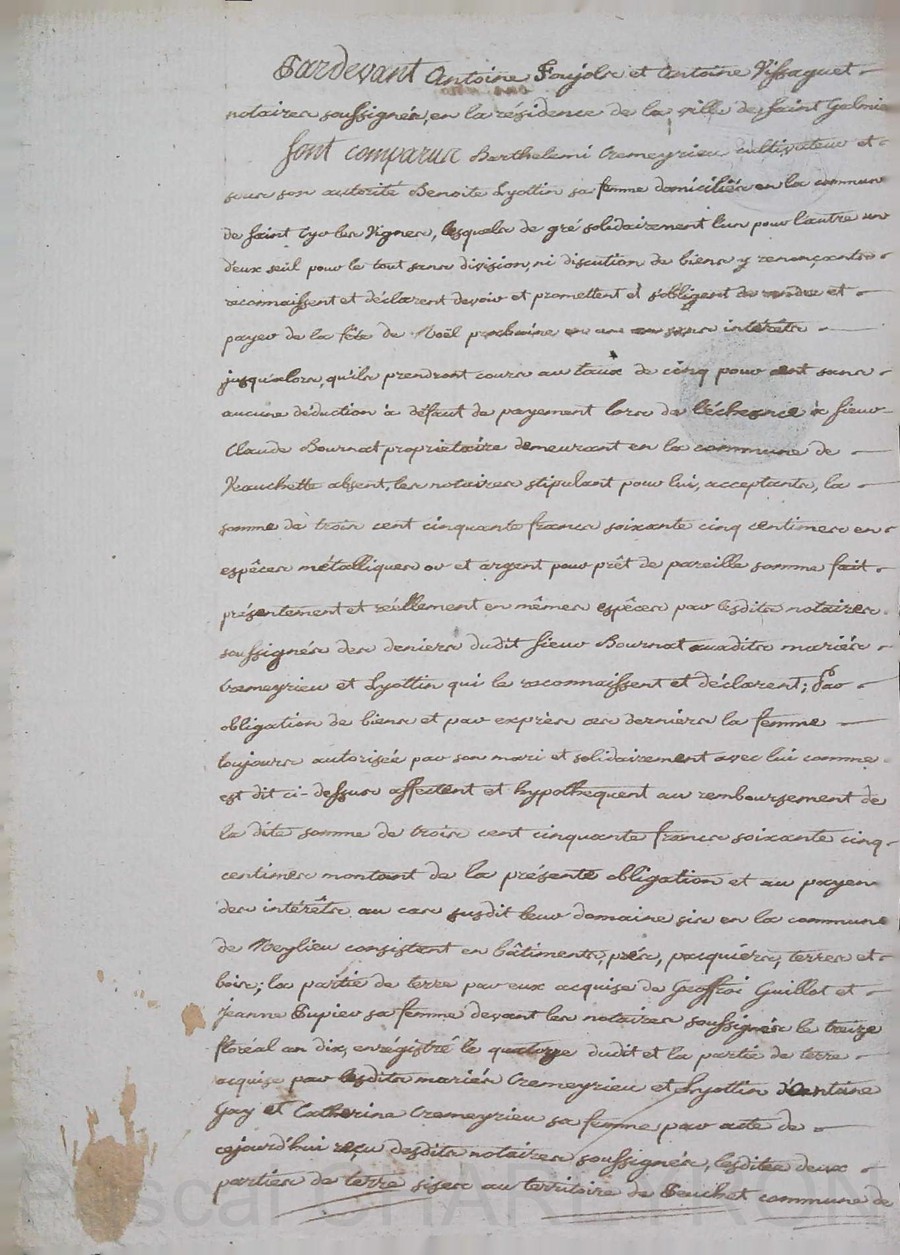 Pardevant Antoine Foujols et Antoine Vissaguet
notaires soussignés, en la résidence de la ville de Saint Galmie
Sont comparus Berthelemi Cremeyrieu cultivateur et
sous son autorité Benoite Lyottin sa femme domiciliés en la commune
de Saint Cyr les Vignes, lesquels de gré solidairement l'un pour l'autre un
d'eux seul pour le tout sans division, ni discution de biens y renonçants
reconnaissent et déclarent devoir et promettent et s'obligent de rendre et
payer de la fête de Noël prochaine en un an sans intérêts
jusqu'alors, qu'ils prendront cours au taux de cinq pour cent sans
aucune déduction à défaut de payement lors de l'écheance à sieur
Claude Bournat propriétaire demeurant en la commune de
Veauchette absent, les notaires stipulant pour lui, acceptants, la
somme de trois cent cinquante francs soixante cinq centimes en
espêces métalliques or et argent pour prêt de pareille somme fait
présentement et réellement en mêmes espêces par lesdits notaires
soussignés des deniers dudit sieur Bournat auxdits mariés
Cremeyrieu et Lyottin qui le reconnaissent et déclarent; Par
obligation de biens et par exprès ces derniers la femme
toujours autorisée par son mari et solidairement avec lui comme
est dit ci-dessus affectent et hypothequent au remboursement de
la dite somme de trois cent cinquante francs soixante cinq
centimes montant de la présente obligation et au payem
des intérêts au cas susdit leur domaine sis en la commune
de Meylieu consistent en bâtiments, prés, pacquiers, terres et
bois; la partie de terre par eux acquise de Geoffroi Guillot et
Jeanne Dupieu sa femme devant les notaires soussignés le treize
floréal an dix, enrégistré le quatorze dudit et la partie de terre
acquise par lesdits mariés Cremeyrieu et Lyottin d'Antoine
Gay et Catherine Cremeyrieu sa femme par acte de
cejourd'hui reçu desdits notaires soussignés, lesdites deux
parties de terre sises au territoire de Peuchet commune de
Pascal CHARETRON